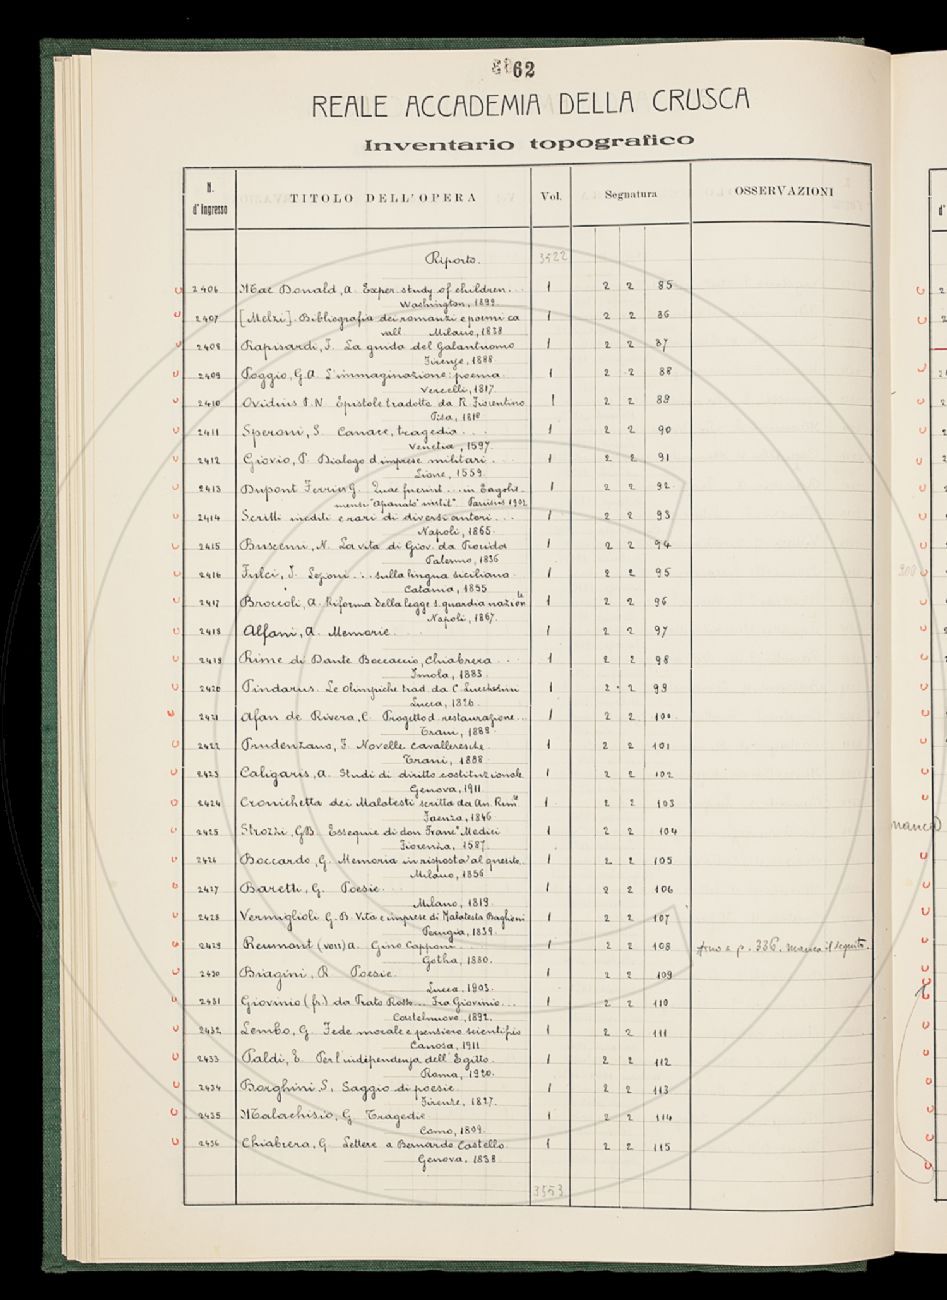 62
REALE ACCADEMIA DELLA CRUSCA
Inventario topografico
N. d'Ingresso TITOLO DELL'OPERA Vol. Segnatura OSSERVAZIONI
Riporto. 3522
2406 Mac Donald, A. Exper. study of children... 1 2 2 85
Washington, 1899
2407 [Melzi]. Bibliografia dei romanzi e poemi ca 1 2 2 86
vall Milano, 1838
2408 Rapisardi, F. La guida del Galantuomo 1 2 2 87
Firenze, 1888
2409 Poggio, G.A. L'immaginazione: poema. 1 2 2 88
Vercelli, 1817
2410 Ovidius P. N. Epistole tradotte da R. Fiorentino 1 2 2 89
Pisa, 1818
2411 Speroni, S. Canace, tragedia... 1 2 2 90
Venetia, 1597.
2412 Giovio, P. Dialogo d imprese militari... 1 2 2 91
Lione, 1559.
2413 Dupont Ferrier G. Quae fuerint ... in 1 2 2 92
mensi "apanato" instit." Parisiis 1902
2414 Scritti inediti e rari di diversi autori... 1 2 2 93
Napoli, 1865.
2415 Buscemi, N. La vita di Giov. da Procida 1 2 2 94
Palermo, 1836
2416 Fulci, I. Lezioni ... sulla lingua siciliana. 1 2 2 95
Catania, 1855
2417 Broccoli, A. Riforma della legge s. guardia nazion.le 1 2 2 96
Napoli, 1867.
2418 Alfani, A. Memorie. 1 2 2 97
2419 Rime di Dante Boccaccio, Chiabrera... 1 2 2 98
Imola, 1883.
2420 Pindarus. Le Olimpiche trad. da C. Lucchesini 1 2 2 99
Lucca, 1826.
2421 Afan de Rivera, C. Progetto d. restaurazione... 1 2 2 100
Trani, 1888.
2422 Prudenzano, F. Novelle cavalleresche. 1 2 2 101
Trani, 1888.
2423 Caligaris, A. Studi di diritto costituzionale 1 2 2 102
Genova, 1911
2424 Cronichetta dei Malatesti scritta da An. Rim.o 1 2 2 103
Faenza, 1846
2425 Strozzi, GB. Essequie di don Franc.o Medici 1 2 2 104
Fiorenza, 1587.
2426 Boccardo, G. Memoria in risposta al quesito. 1 2 2 105
Milano, 1856
2427 Baretti, G. Poesie. 1 2 2 106
Milano, 1819.
2428 Vermiglioli G. B. Vita e imprese di Malatesta Baglioni 1 2 2 107
Perugia, 1839.
2429 Reumont (von) A. Gino Capponi 1 2 2 108 fino a p. 336. manca il seguito.
Gotha, 1880.
2430 Biagini, R. Poesie. 1 2 2 109
Lucca, 1903.
2431 Giovinio (fr.) da Prato Ross... Fra Giovinio... 1 2 2 110
Castelnuovo, 1892.
2432 Lembo, G. Fede morale e pensiero scientifico 1 2 2 111
Canosa, 1911
2433 Paldi, E. Per l'indipendenza dell' Egitto. 1 2 2 112
Roma, 1920.
2434 Borghini S. Saggio di poesie. 1 2 2 113
Firenze, 1827.
2435 Malachisio, G. Tragedie. 1 2 2 114
Como, 1809.
2436 Chiabrera, G. Lettere a Bernardo Castello. 1 2 2 115
Genova, 1838
3553